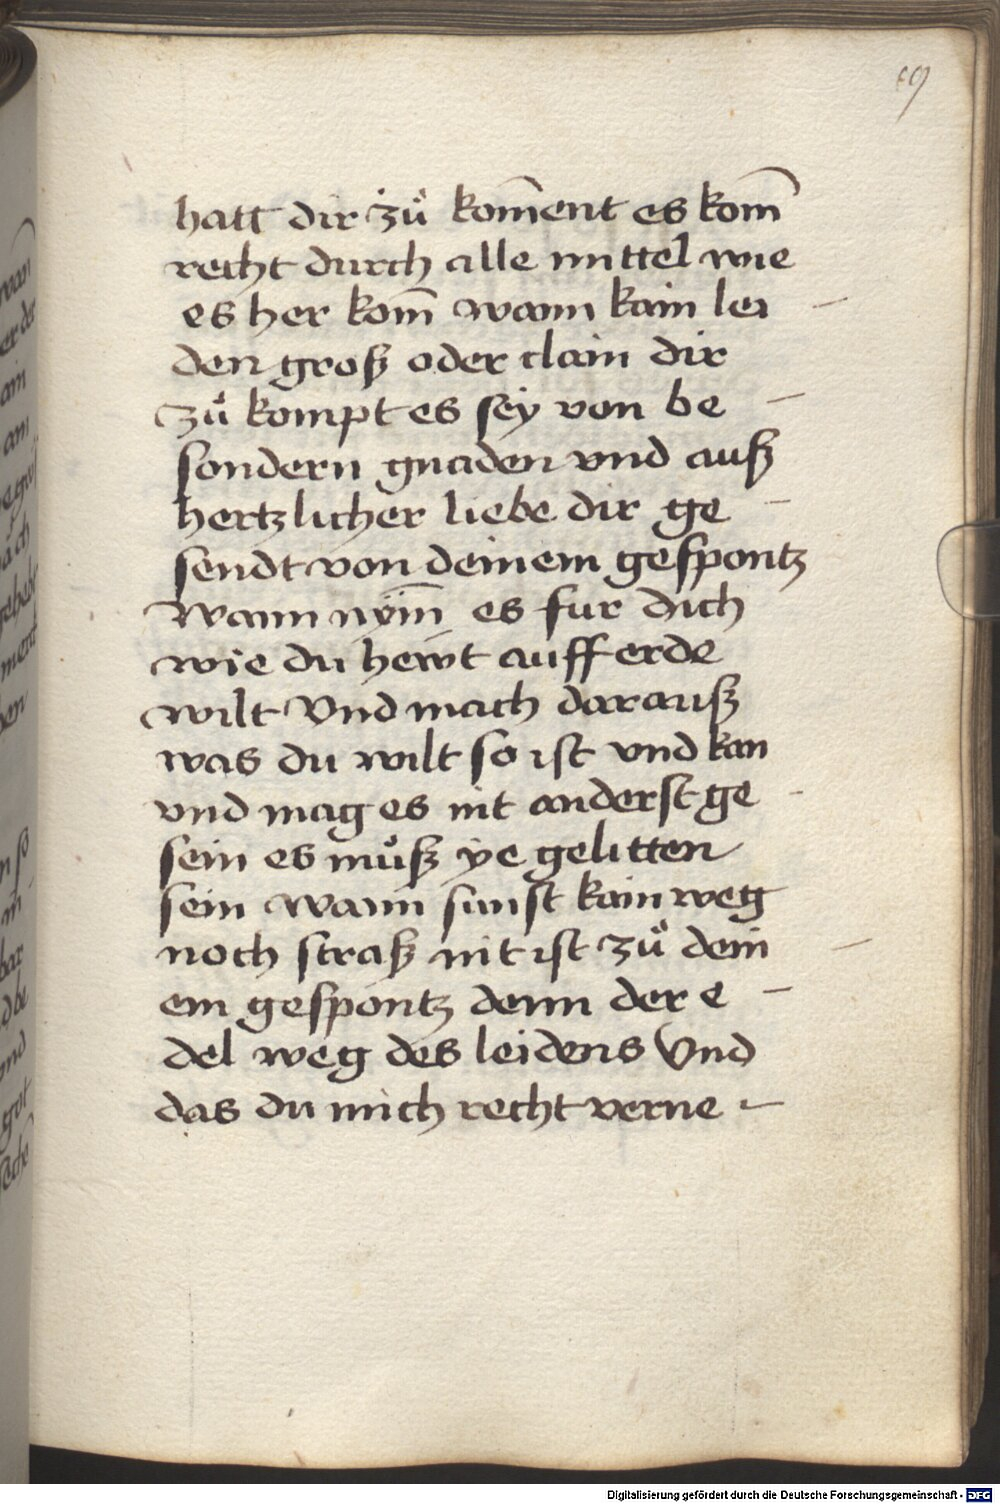 69
hatt dir zů kom̄ent es kom̄
recht durch alle mittel wie
es her kom̄ wann kain lei –
den groß oder clain dir
zů kompt es sey von be –
sondern gnaden vnd auß
hertzlicher liebe dir ge –
sendt von deinem gespontz
Wann nym̄ es fur dich
wie du hewt auff erde
wilt Vnd mach darauß
was du wilt so ist vnd kan
vnd mag es nit anderst ge –
sein es můß ye gelitten
sein Wann sunst kain weg
noch straß nit ist zů dein –
em gespontz denn der e –
del weg des leidens Vnd
das du mich recht verne –
Digitalisierung gefördert durch die Deutsche Forschungsgemeinschaft - DFG